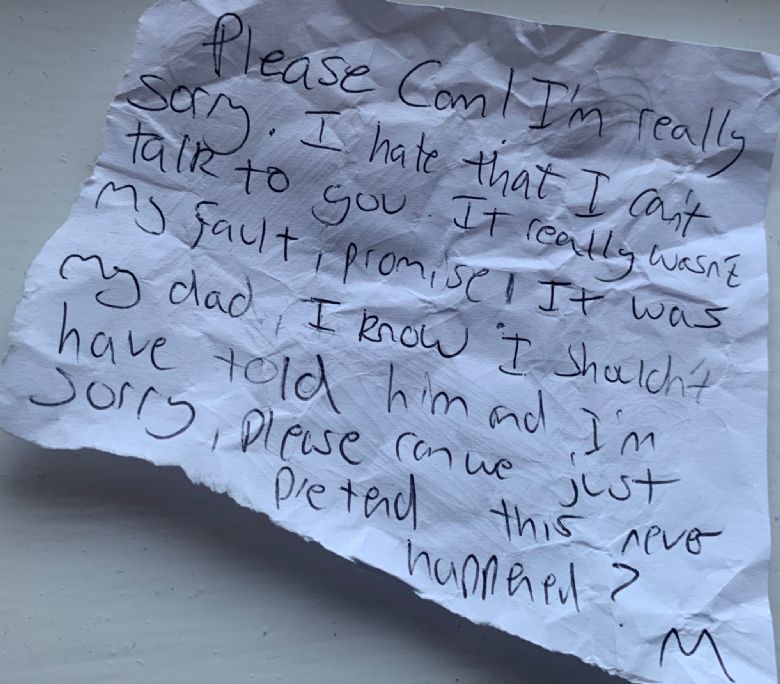 Please Cam! I'm really
sorry. I hate that I can't
talk to you. It really wasn't
my fault, I promise! It was
my dad, I know I shouldn't
have told him and I'm
sorry, please can we just
pretend this never
happened?
M